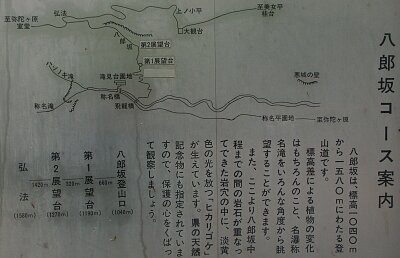 八郎坂コース案内
八郎坂は、標高一〇四〇m
から一五八〇mにわたる登
山道です。
標高差による植物の変化
はもちろんのこと、名瀑称
名滝をいろんな角度から眺
望することができます。
また、ここより八郎坂中
程までの間の岩石が重なっ
てできた岩穴の中に、淡黄
色の光を放つ「ヒカリゴケ」
が生えています。県の天然
記念物にも指定されていま
すので、保護の心をくばっ
て観察しましょう。
八郎坂登山口
(1040m)
660m
第1展望台
(1190m)
320m
第2展望台
(1270m)
1420m
弘法
(1580m)
至弥陀ヶ原
室堂
弘法
上ノ小平
至美女平
桂台
大観台
八郎坂
第2展望台
第1展望台
滝見台園地
称名橋
飛龍橋
称名滝
悪城の壁
称名平園地
至弥陀ヶ原